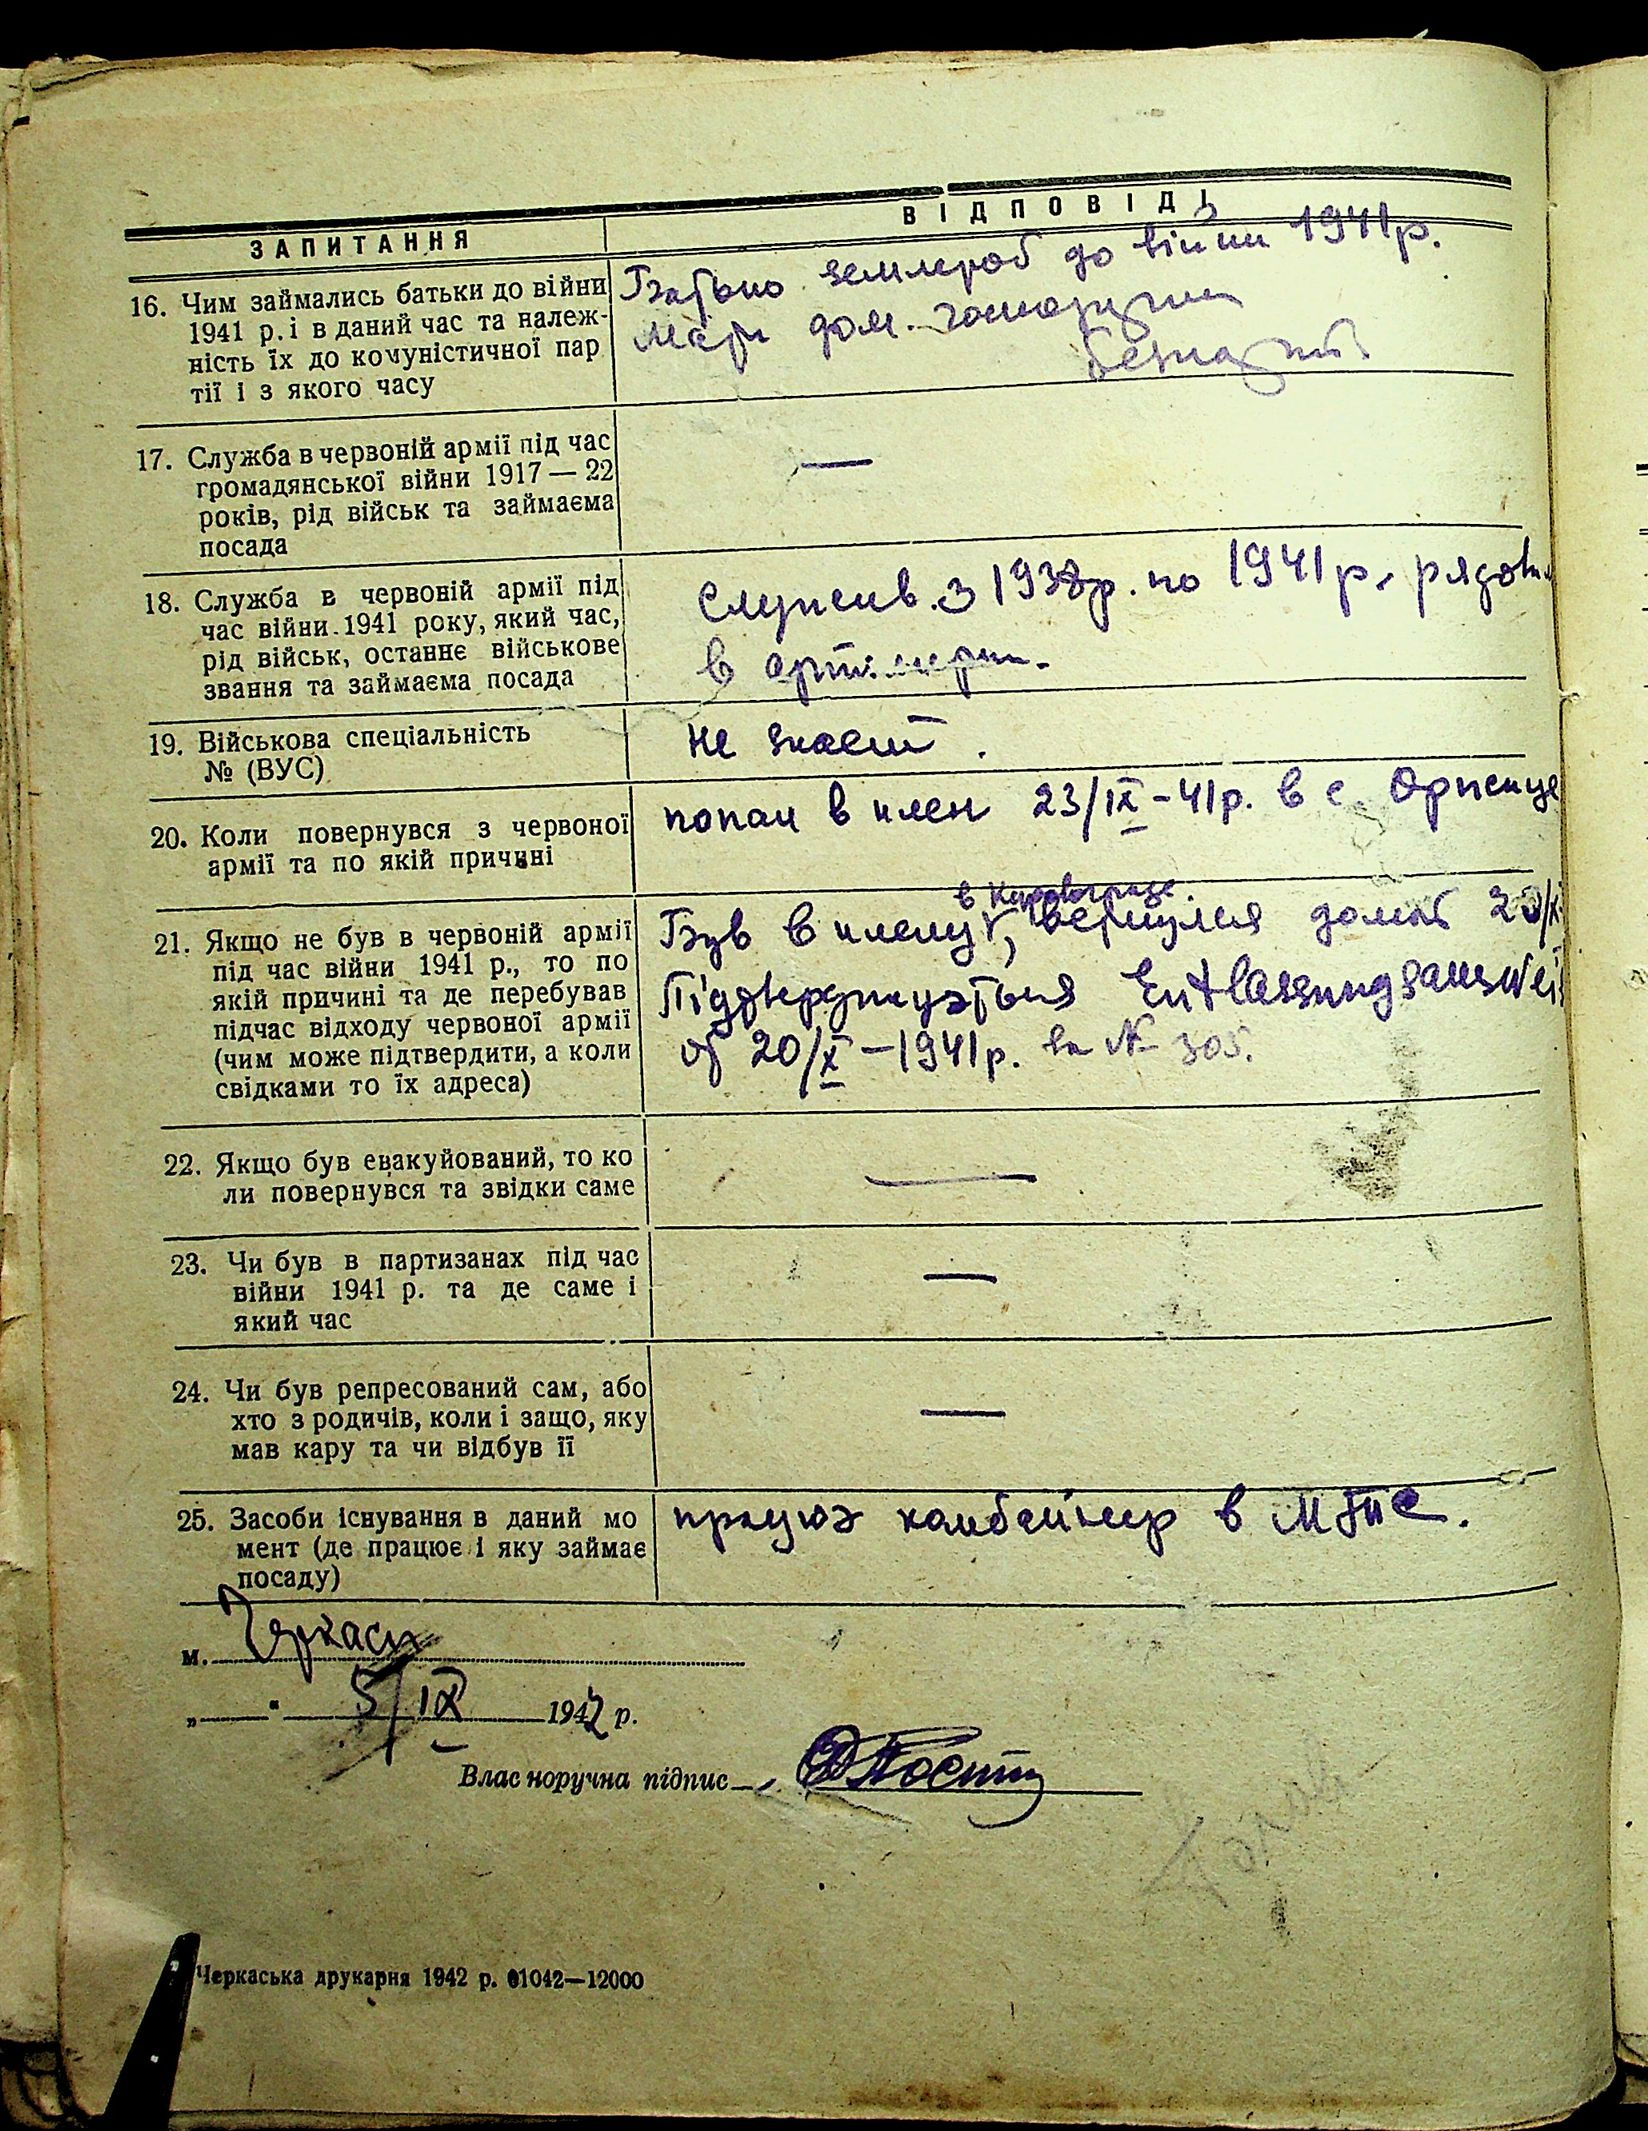 ЗАПИТАННЯ
ВІДПОВІДІ
16. Чим займались батьки до війни
1941 р. і в даний час та належ-
ність їх до комуністичної пар
тії і з якого часу
Батько землероб до війни 1941 р.
Мати дом. господарка
безпартій
17. Служба в червоній армії під час
громадянської війни 1917 — 22
років, рід військ та займаєма
посада
—
18. Служба в червоній армії під
час війни 1941 року, який час,
рід військ, останнє військове
звання та займаєма посада
Служив з 1938 р. по 1941 р. рядовим
в артилерии.
19. Військова спеціальність
№ (ВУС)
не знает.
20. Коли повернувся з червоної
армії та по якій причині
попал в плен 23/IX-41 р. в с. Оржице
21. Якщо не був в червоній армії
під час війни 1941 р., то по
якій причині та де перебував
підчас відходу червоної армії
(чим може підтвердити, а коли
свідками то їх адреса)
в Кировограде
Був в плену, вернулся домой 20/X
Підтверджуэться Entlassungsauswei
от 20/X — 1941 р. за № 305.
22. Якщо був евакуйований, то ко
ли повернувся та звідки саме
—
23. Чи був в партизанах під час
війни 1941 р. та де саме і
який час
—
24. Чи був репресований сам, або
хто з родичів, коли і защо, яку
мав кару та чи відбув її
—
25. Засоби існування в даний мо
мент (де працює і яку займає
посаду)
працюэ комбайнер в МТС.
м. Черкаси
„ “ 5/IX 1942 р.
Власноручна підпис
Черкаська друкарня 1942 р. 01042—12000